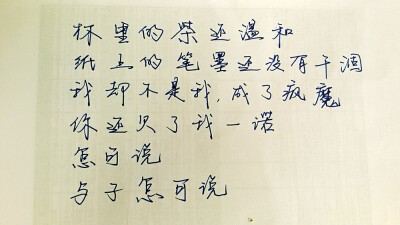 杯里的茶还温和
纸上的笔墨还没有干涸
我却不是我,成了疯魔
你还欠了我一诺
怎可说
与子怎可说